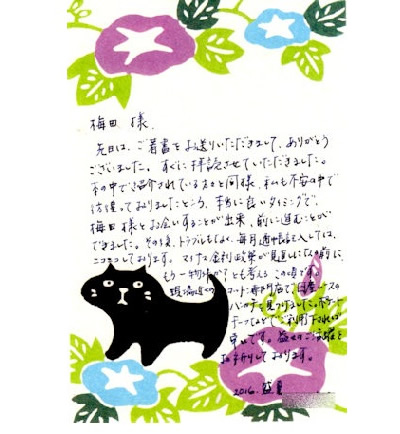 梅田 様
先日は、ご著書をお送りいただきまして、ありがとう
ございました。すぐに拝読させていただきました。
本の中で紹介されている方と同様、私も不安の中で
彷徨っておりましたところ、本当に良いタイミングで、
梅田様とお会いすることが出来、前に進むことが
できました。その後、トラブルもなく、毎月通帳記入しては、
ニコニコしております。マイナス金利政策が
もう一物件か?とも考えるこの頃です。
ハンカチを見つけました。
ご利用下されば
幸いです。益々のご活躍を
お祈りしております。
2016. 盛夏